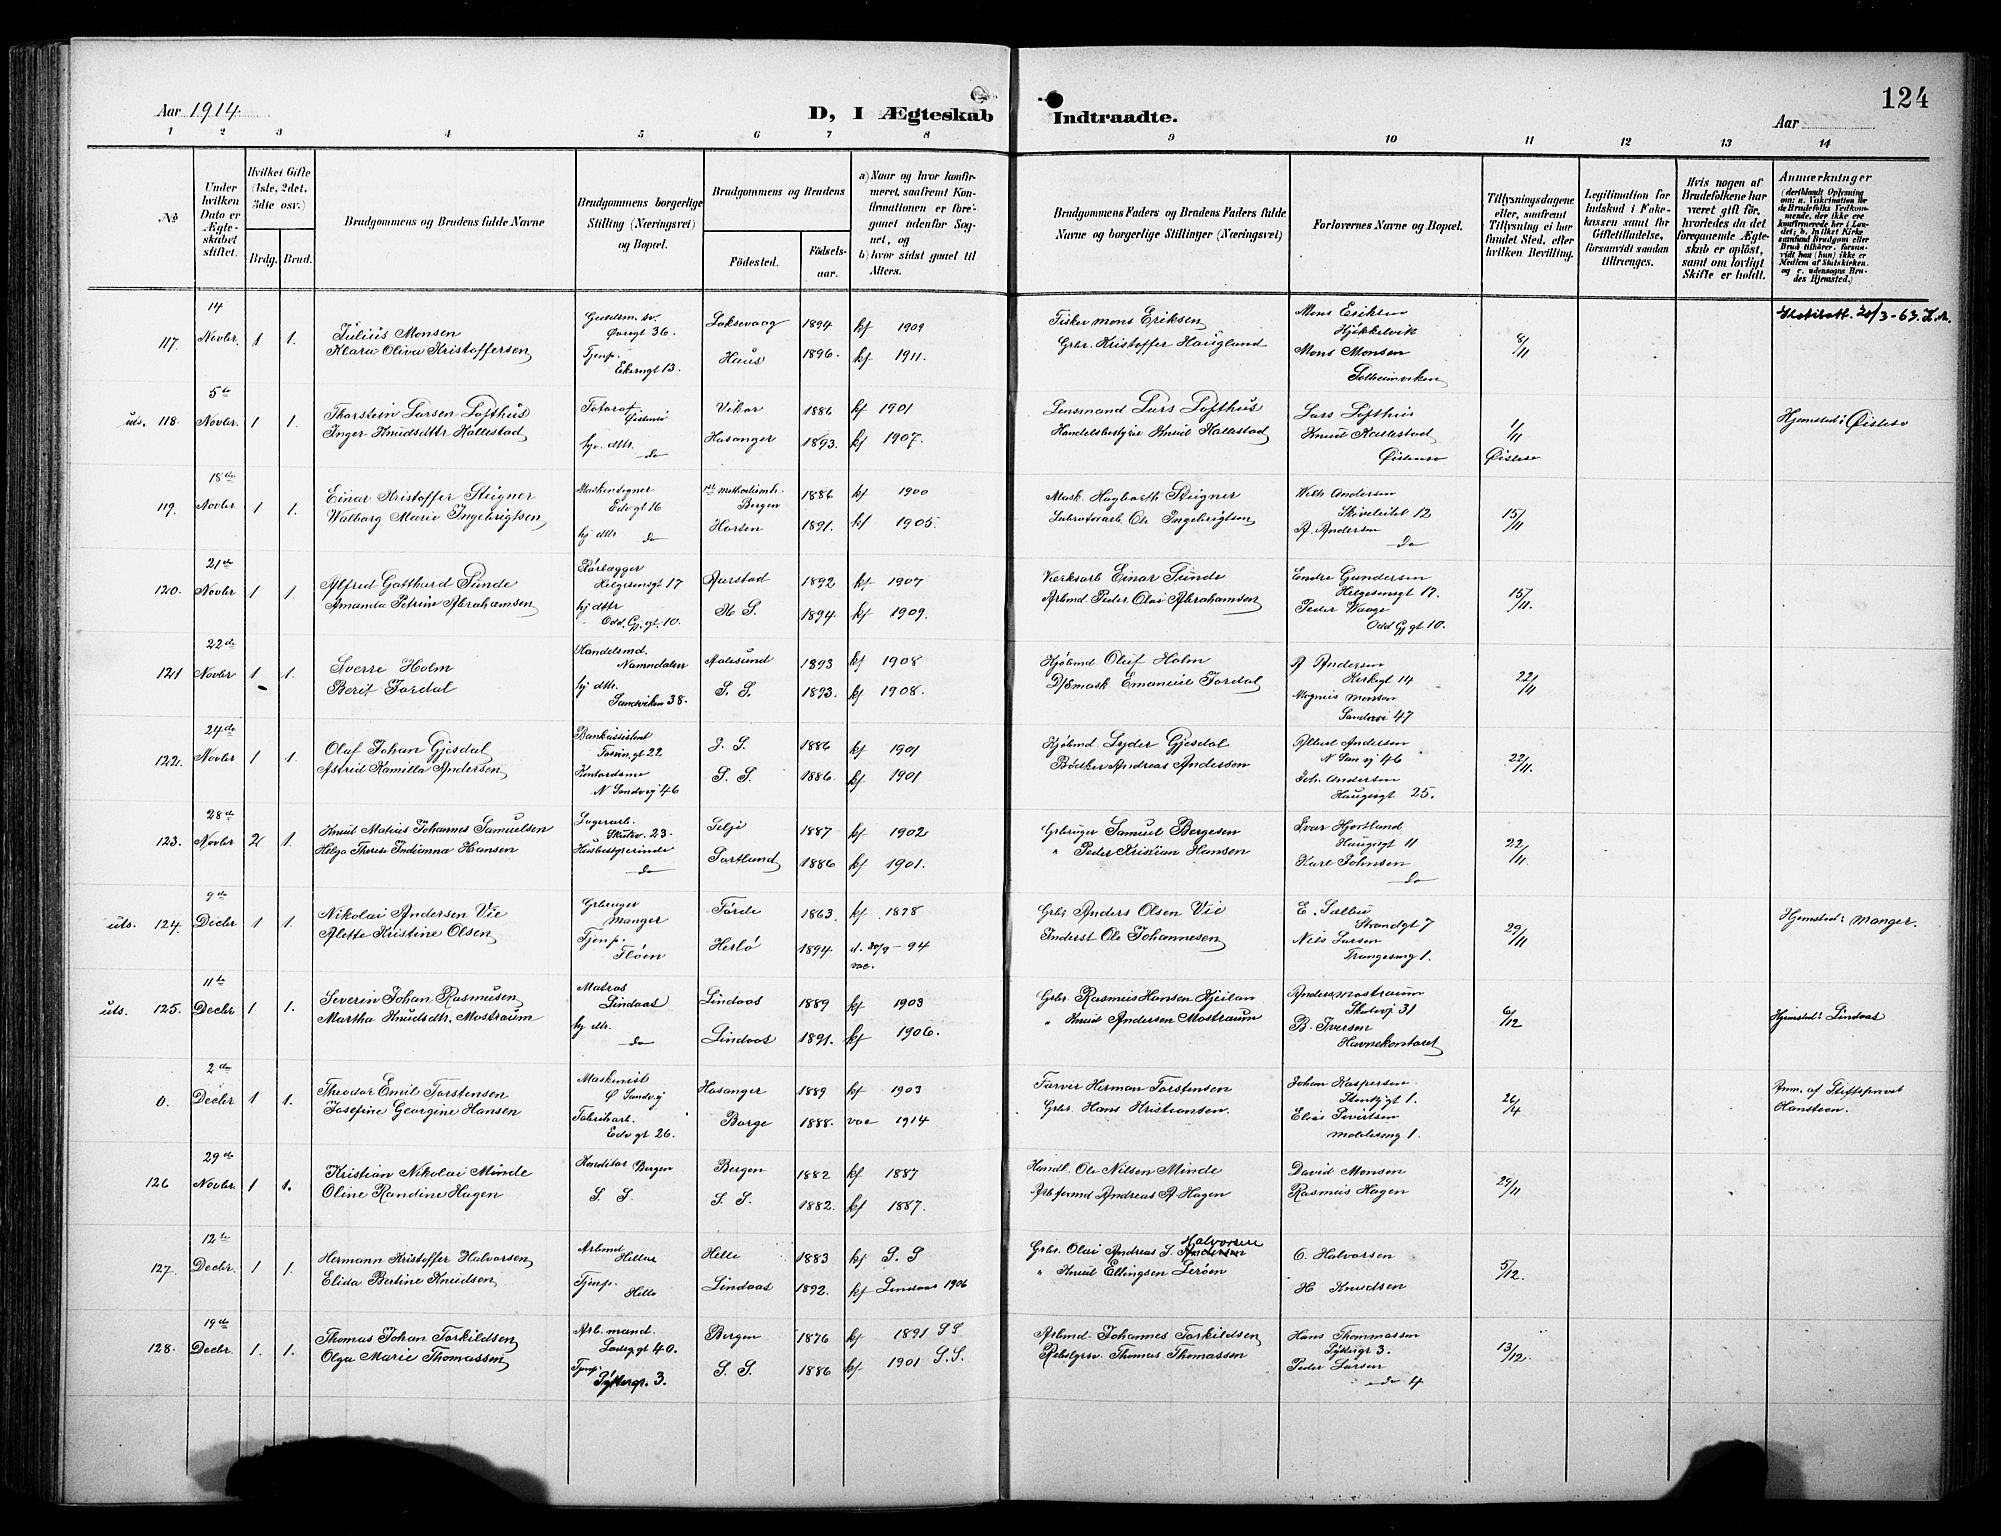 Aar 1914.
D, I Ægteskab Indtraadte.
124
Aar
1 2 3 4 5 6 7 8 9 10 11 12 13 14
No
Under hvilken Dato er Ægteskabet stiftet.
Hvilket Gifte (1ste, 2det, 3dte osv.)
Brdg. Brud.
Brudgommens og Brudens fulde Navne
Brudgommens borgerlige Stilling (Næringsvei) og Bopæl.
Brudgommens og Brudens
Fødested. Fødselsaar.
a) Naar og hvor konfirmeret, saafremt Konfirmationen er foregaaet udenfor Sognet, og
b) hvor sidst gaaet til Alters.
Brudgommens Faders og Brudens Faders fulde Navne og borgerlige Stillinger (Næringsvei)
Forlovernes Navne og Bopæl.
Tillysningsdagene eller, saafremt Tillysning ei har fundet Sted, efter hvilken Bevilling.
Legitimation for Indskud i Enkekassen samt for Giftetilladelse, forsaavidt saadan tiltrænges.
Hvis nogen af Brudefolkene har været gift før, hvorledes da det foregaaende Ægteskab er opløst, samt om lovligt Skifte er holdt.
Anmærkninger
(deriblandt Oplysning om: a. Vakcination for de Brudefolks Vedkommende, der ikke ere konfirmerede her i Landet; b. hvilket Kirkesamfund Brudgom eller Brud tilhører, forsaavidt han (hun) ikke er Medlem af Statskirken, og c. udensogns Brudes Hjemsted.)
117. 14 Novbr 1 1. Julius Monsen 36. Laksevaag 1894 kf 1909 Fisker Mons Eriksen Mons Eriksen 8/11 20/3-63.
Klara Oliva Kristoffersen Tjenp. Ekerngt 13. Haus 1896. kf 1911. Grbr. Kristoffer Haugland Mons Monsen
Solheimsviken
uts. 118. 5te Novbr. 1 1. Thorstein Larsen Lofthus Fotograf Vikør 1886 kf 1901 Lensmand Lars Lofthus Lars Lofthus 1/11 Øistese Hjemsted: Øistese
Inger Knudsdttr Hallestad hj. dttr. do Hosanger 1893. kf 1907. Handelsbestyrer Knud Hallestad Knud Hallestad
Øistese
119. 18de Novbr 1 1. Einar Kristoffer Steigner Edv gt 16 Bergen 1886 kf 1900 Mask. Hagbarth Steigner Wilh Andersen 15/11
Skivebakken 12
Walborg Marie Ingebrigtsen hj dttr do Horten 1891. kf 1905. Ole Ingebrigtsen A. Andersen
do
120. 21de Novbr 1 1. Alfred Gotthard Sunde Rørlægger Helgesensgt 17 Aarstad 1892 kf 1907 Værksarb Einar Sunde Endre Gundersen 15/11.
Helgesensgt 17.
Amanda Petrine Abrahamsen hj dttr Odd. Gj. gt. 10. 1894. kf 1909. Arbmd Peder Olai Abrahamsen Peder Waage
Odd Gj gt 10.
121 22de Novbr 1 1. Sverre Holm Handelsmd. Namndalen Aalesund 1893 kf 1908 Kjøbmd Oluf Holm A Andersen 22/11
Kirkegt 14
Berit Jordal hj dttr. Sandviken 38. S. S. 1893. kf 1908. Emanuel Jordal Magnus Monsen
47
122. 24de Novbr 1 1. Olaf Johan Gjesdal Bankassistent 22 S. S. 1886 kf 1901 Kjøbmd Lyder Gjesdal Albert Andersen 22/11.
N San vj 46
Astrid Kamilla Andersen Kontordame N Sandvj 46 S. S. 1886. kf 1901 Bødker Andreas Andersen Joh. Andersen
Haugesgt 25.
123. 28de Novbr 2 1. Knud Matius Johannes Samuelsen Lagerarb. Skutev. 23. Selje 1887 kf 1902 Grbruger Samuel Børgesen Ivar Hjortland 22/11.
Haugesgt 11
Helga Therese Indianna Hansen Husbestyrerinde do Sortland 1886 kf 1901. " Peder Kristian Hansen Karl Johnsen
do
uts. 124. 9de Decbr 1 1. Nikolai Andersen Vie Grbruger Manger Førde 1863. kf. 1878 Grbr Anders Olsen Vie E. Sælbu 29/11 Hjemsted: Manger.
Strandgt 7
Alette Kristine Olsen Tjenp. Fløen Herlø 1894 d. 30/9 - 94 vac. Inderst Ole Johannesen Nils Larsen
Trangesmg 1.
uts. 125. 11te Decbr 1 1. Severin Johan Rasmusen Matros Lindaas Lindaas 1889 kf 1903 Grbr. Rasmus Hansen Kjeilen Anders Mostraum 6/12 Hjemsted: Lindaas
Skutevj 31
Martha Knudsdtr. Mostraum hj dtr. do Lindaas 1891. kf 1906. " Knud Andersen Mostraum B. Iversen
Havnekontoret
0. 2den Decbr 1 1. Theodor Emil Torstensen Maskinist Ø Sandvj Hosanger 1889 kf 1903 Farver Herman Torstensen Johan Kaspersen 26/4 Anm. af Stiftsprovst Hansteen.
Stenkjgt 1.
Josefine Georgine Hansen Fabrikarb. Edv gt 26. Borge 1888. vac 1914 Grbr. Hans Kristiansen. Elias Sivertsen
Moldesmg 1.
126 29de Novbr. 1 1. Kristian Nikolai Minde Konditor Bergen Bergen 1882 kf 1887 Handl. Ole Nilsen Minde David Monsen 29/11
Oline Randine Hagen S. S. S. S. 1882. kf 1887. Arb.formd Andreas A. Hagen Rasmus Hagen
127. 12te Decbr. 1 1. Hermann Kristoffer Halvorsen Arbmd Helle Helle 1883 kf S. S Grbr. Olai Andreas S. Andersen Halvorsen O. Halvorsen 5/12.
Elida Bertine Knudsen Tjenp. Helle Lindaas 1892. kf Lindaas 1906 " Knud Ellingsen Lerøen H Knudsen
128. 19de Decbr. 1. 1. Thomas Johan Torkildsen Arb. mand. 40. Bergen 1876 kf 1891 S S Arbmd Johannes Torkildsen Hans Thommassen 13/12.
3.
Olga Marie Thomassen Tjenp 3. S. S. 1886 kf 1901 S. S. Thomas Thomassen Peder Larsen
do 4